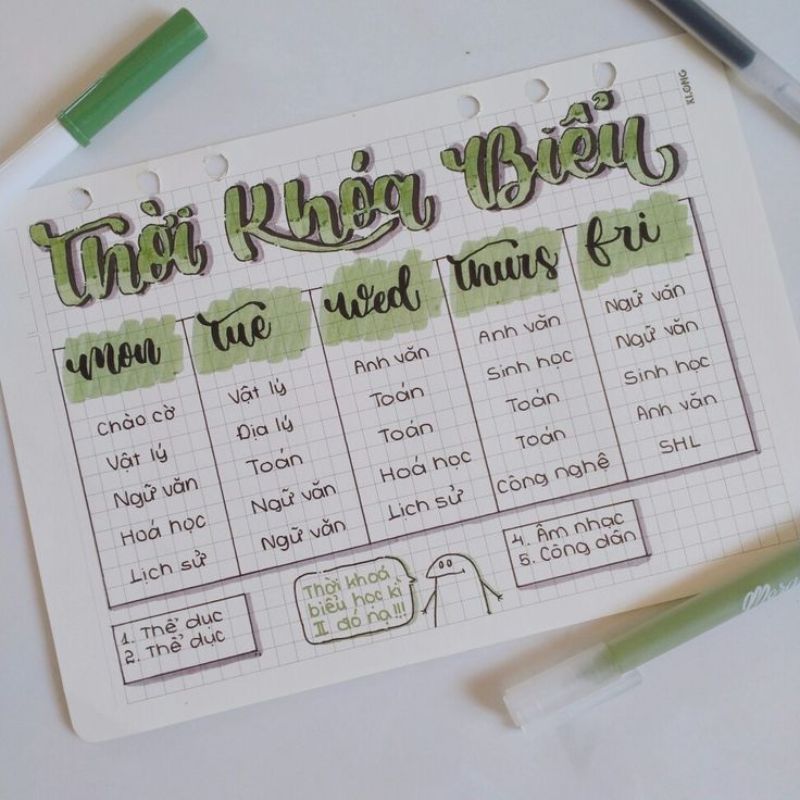 KLONG
Thời Khóa Biểu
mon
Chào cờ
Vật lý
Ngữ văn
Hoá học
Lịch sử
tue
Vật lý
Địa lý
Toán
Ngữ văn
Ngữ văn
wed
Anh văn
Toán
Toán
Hoá học
Lịch sử
thurs
Anh văn
Sinh học
Toán
Toán
Công nghệ
fri
Ngữ văn
Ngữ văn
Sinh học
Anh văn
SHL
1. Thể dục
2. Thể dục
Thời khoá
biểu học kì
II đó nạ!!!
4. Âm nhạc
5. Công dân